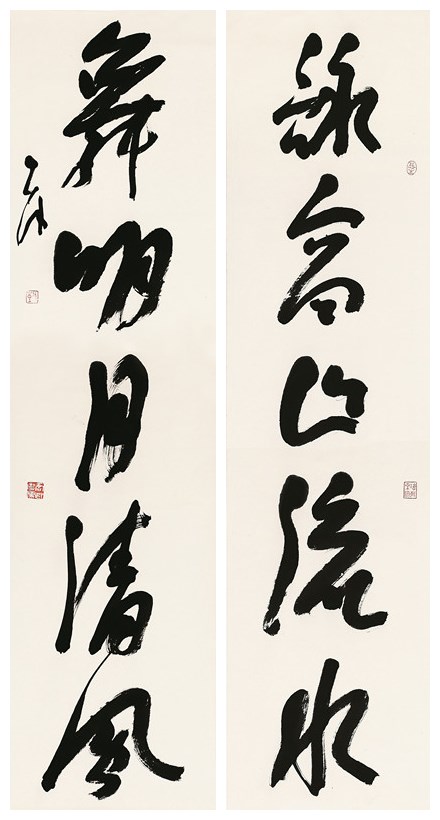 詠高山流水
舞明月清風